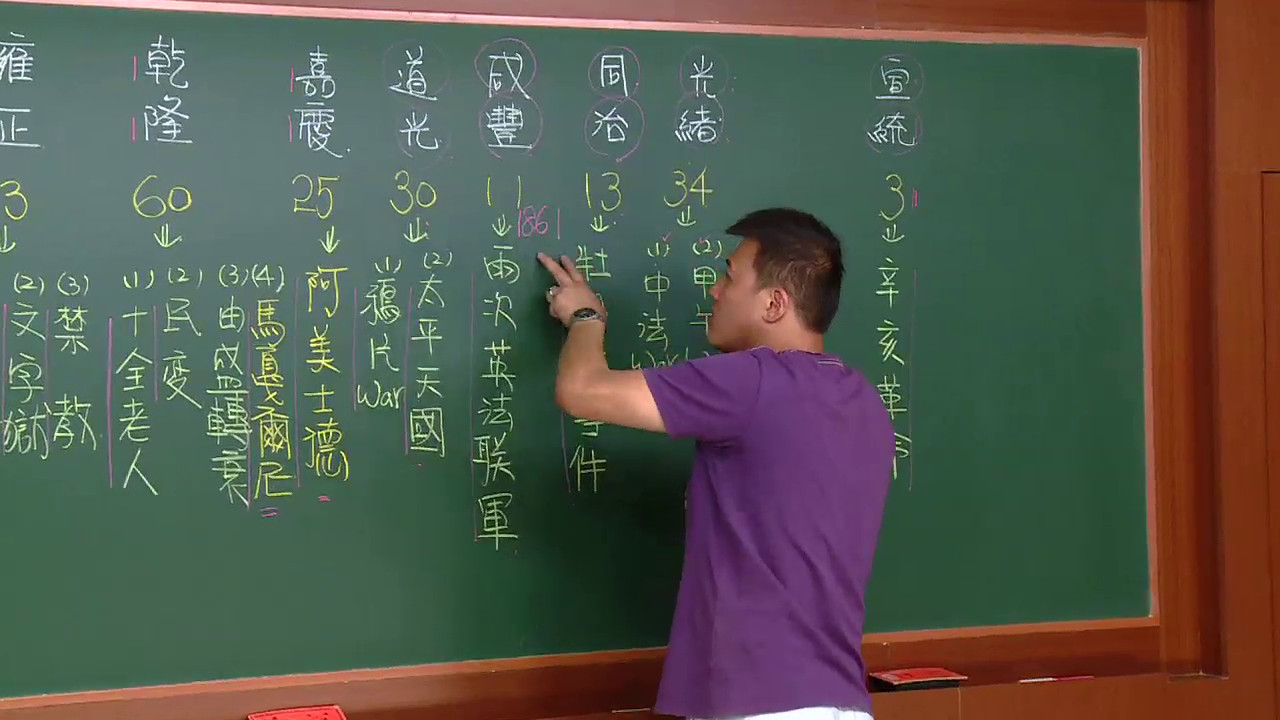 雍正
3
(2)文字獄
(3)禁教
乾隆
60
(1)十全老人
(2)民變
(3)由盛轉衰
(4)馬戛爾尼
嘉慶
25
阿美士德
道光
30
(1)鴉片War
(2)太平天國
咸豐
11
1861
兩次英法联軍
同治
13
牡
事件
光緒
34
(1)中法War
(2)甲午
宣統
3
辛亥革命